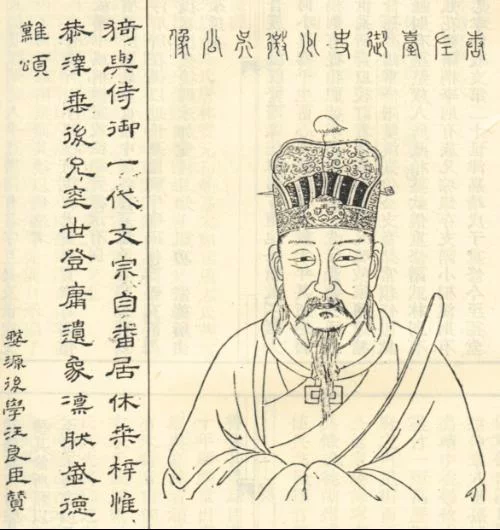 唐左臺御史少微吳公像
猗與侍御一代文宗自番居休桒梓惟
恭澤垂後昆奕世登庸遺象凛肰盛德
難頌
婺源後學汪良臣贊